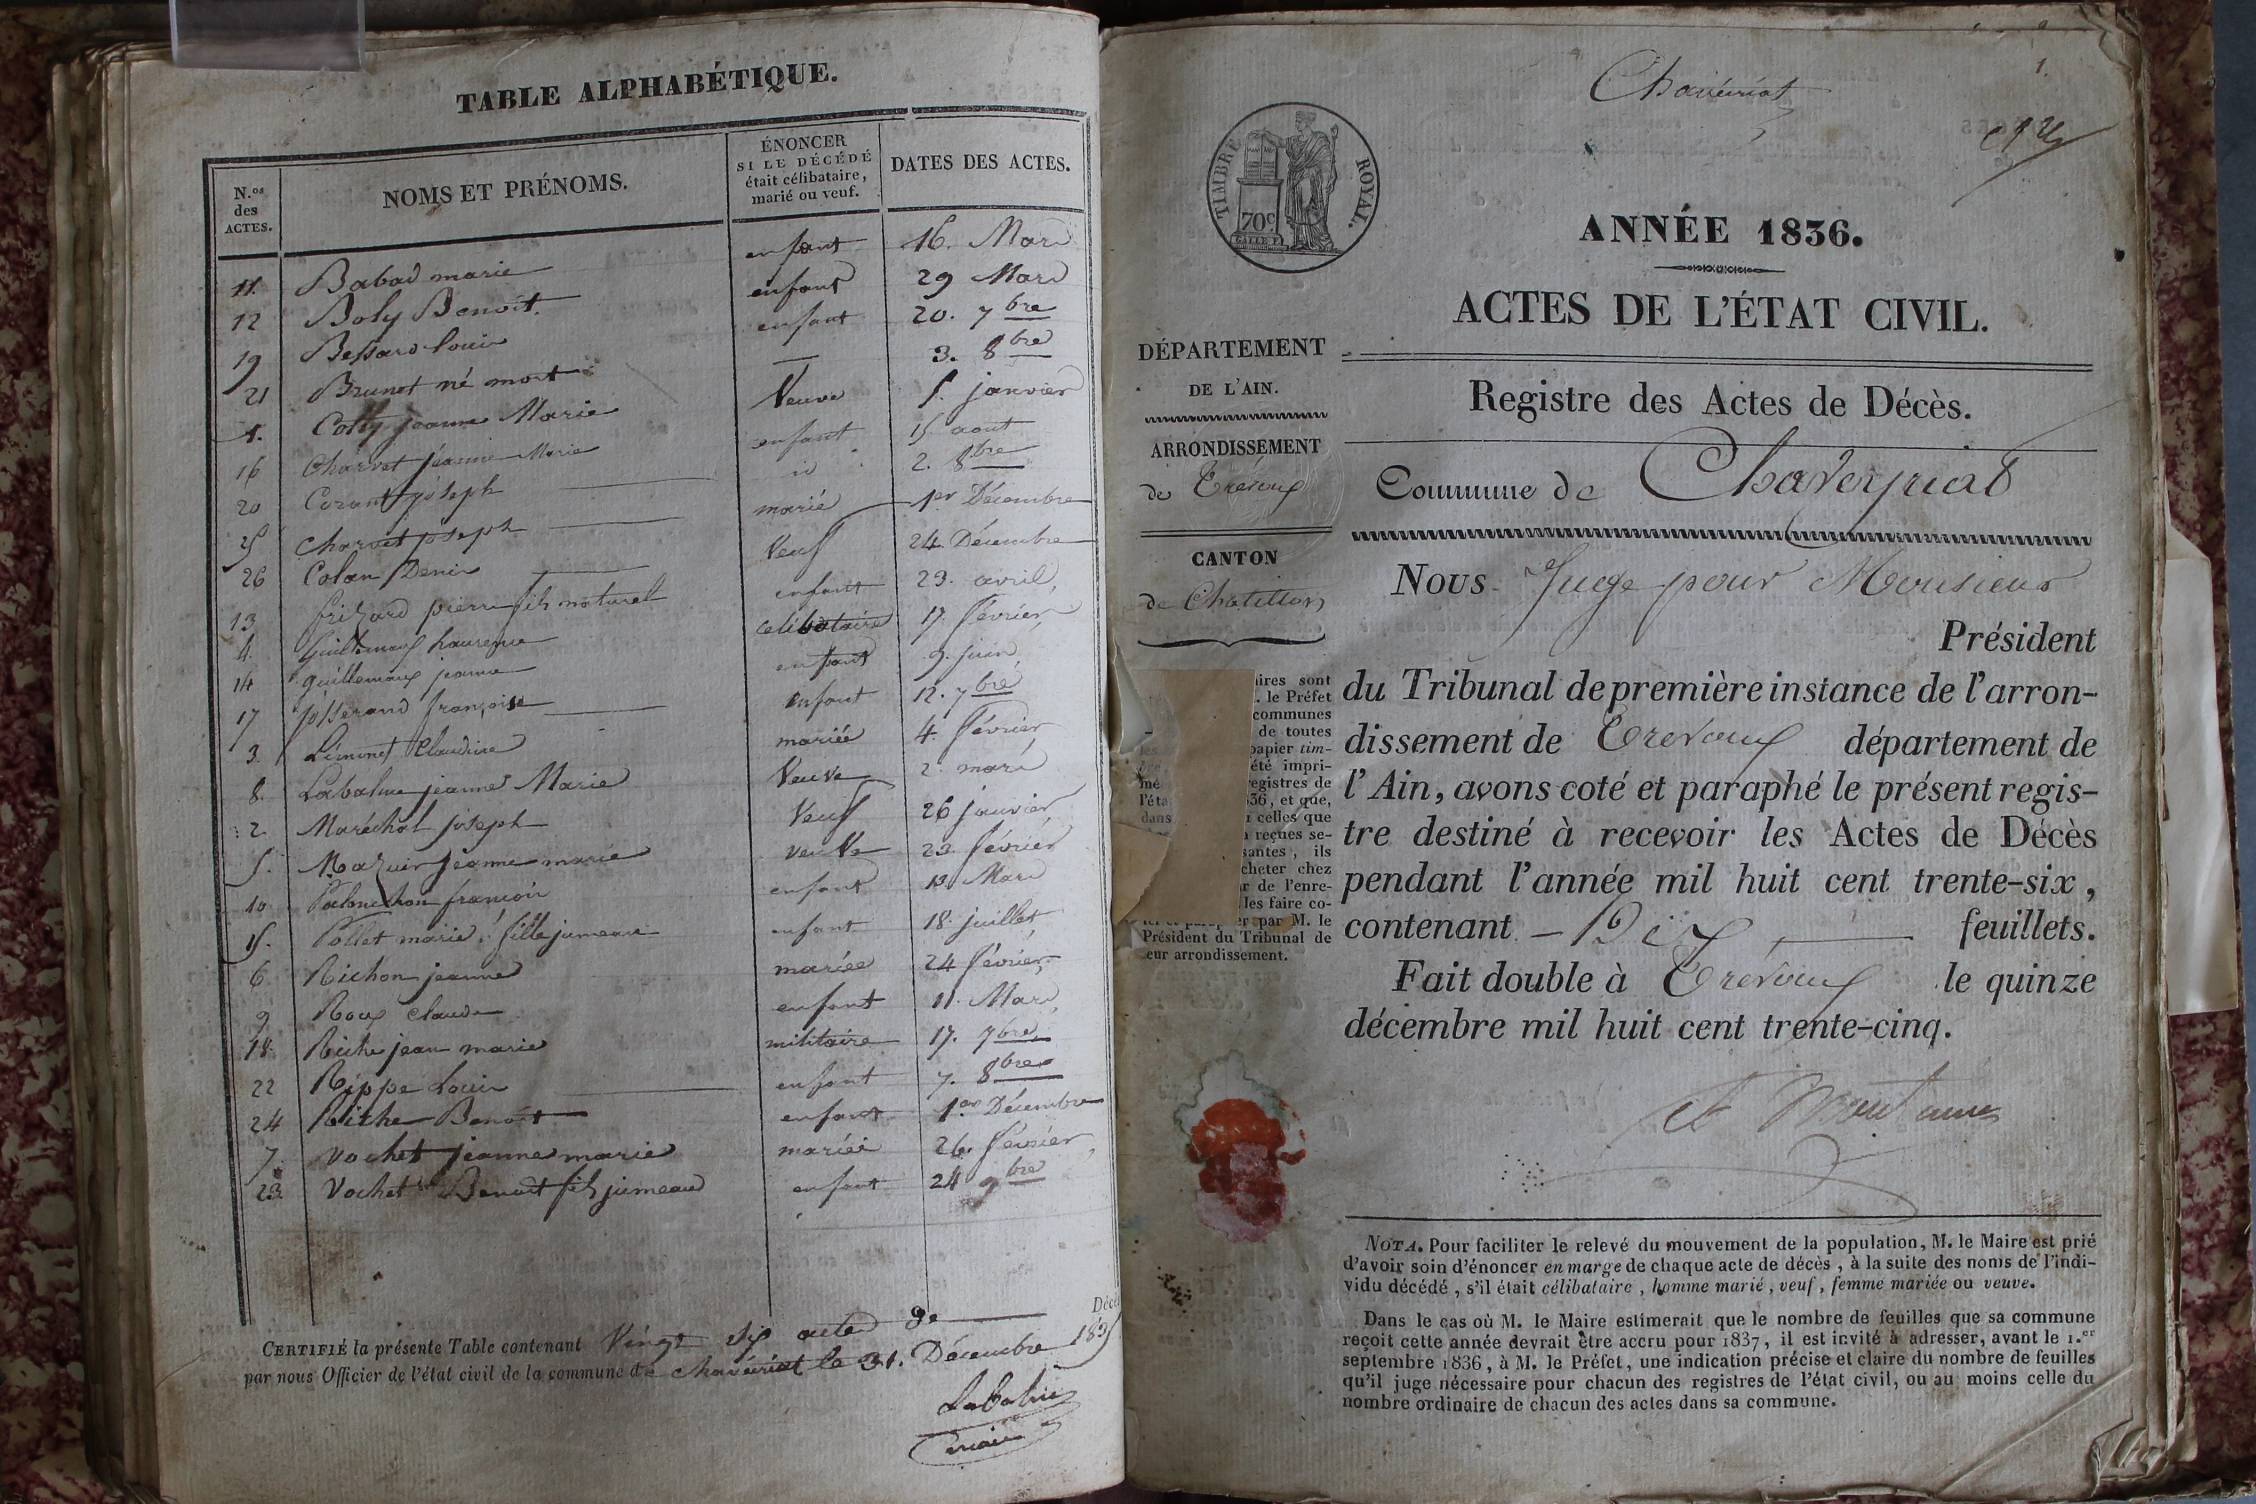 TABLE ALPHABÉTIQUE.
N.os des ACTES.
NOMS ET PRÉNOMS.
ÉNONCER SI LE DÉCÉDÉ était célibataire, marié ou veuf.
DATES DES ACTES.
11. Babad marie enfant 16. Mars
12 Boly Benoit. enfant 29 Mars
19 Bessard Louis enfant 20. 7bre
21 Brunet né mort — 3. 8bre
1. Cotty jeanne Marie Veuve 5. janvier
16 Charvet jeanne Marie enfant 15 aout
20 joseph id 2. 8bre
25 Charvet joseph marié 1er Décembre
26 Colan Denis Veuf 24. Décembre
13 frizard pierre fils naturel enfant 23. avril
4. Guillemaux Laurence célibataire 17. février
14 guillemaux jeanne enfant 9. juin
17 josserand françoise enfant 12. 7bre
3. Limonet Claudine mariée 4. février
8. Labalme jeanne Marie Veuve 2. mars
2 Maréchal joseph Veuf 26 janvier
5. Mazuir jeanne marie veuve 23. février
10 Palonchon françois enfant 13. Mars
15. Pollet marie fille jumeau enfant 18. juillet
6 Richon jeanne mariée 24 février
9 Roux Claude enfant 11. Mars
18 Riche jean marie militaire 17. 7bre
22 Rippe Louis enfant 7. 8bre
24 Rithe Benoit enfant 1er Décembre
7. Vochet jeanne marie mariée 26. février
23 Vochet Benoit fils jumeau enfant 24 9bre
CERTIFIÉ la présente Table contenant Vingt six actes De Décès
par nous Officier de l'état civil de la commune de chavériat le 31. Décembre 1835
Labalme
maire
Chavériat
1.
TIMBRE ROYAL.
70c.
ANNÉE 1836.
ACTES DE L'ÉTAT CIVIL.
DÉPARTEMENT
DE L'AIN.
ARRONDISSEMENT
de Trévoux
CANTON
de Chatillon
aires sont
. le Préfet
communes
de toutes
papier tim-
été impri-
mé egistres de
l'éta 36, et que,
dans celles que
reçues se-
santes, ils
cheter chez
r de l'enre-
les faire co-
er par M. le
Président du Tribunal de
eur arrondissement.
Registre des Actes de Décès.
Commune de Chaveyriat
Nous Juge pour Monsieur
Président
du Tribunal de première instance de l'arron-
dissement de Trévoux département de
l'Ain, avons coté et paraphé le présent regis-
tre destiné à recevoir les Actes de Décès
pendant l'année mil huit cent trente-six,
contenant — Dix — feuillets.
Fait double à Trévoux le quinze
décembre mil huit cent trente-cinq.
NOTA. Pour faciliter le relevé du mouvement de la population, M. le Maire est prié
d'avoir soin d'énoncer en marge de chaque acte de décès, à la suite des noms de l'indi-
vidu décédé, s'il était célibataire, homme marié, veuf, femme mariée ou veuve.
Dans le cas où M. le Maire estimerait que le nombre de feuilles que sa commune
reçoit cette année devrait être accru pour 1837, il est invité à adresser, avant le 1.er
septembre 1836, à M. le Préfet, une indication précise et claire du nombre de feuilles
qu'il juge nécessaire pour chacun des registres de l'état civil, ou au moins celle du
nombre ordinaire de chacun des actes dans sa commune.